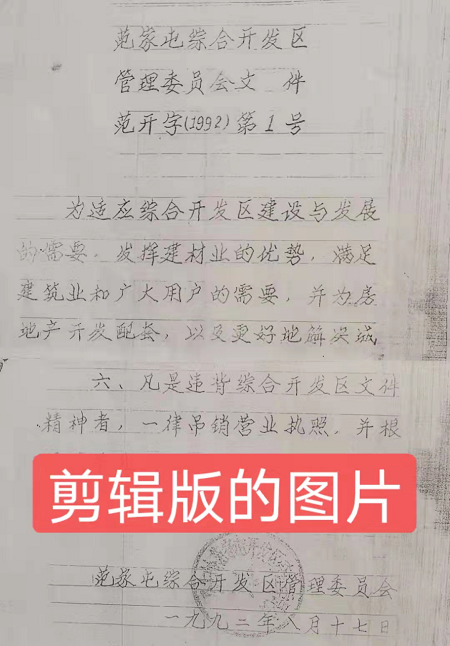 范家屯综合开发区
管理委员会文 件
范开字(1992)第1号
为适应综合开发区建设与发展
的需要，发挥建材业的优势，满足
建筑业和广大用户的需要，并为房
地产开发配套，以及更好地解决城
六、凡是违背综合开发区文件
精神者，一律吊销营业执照，并根
剪辑版的图片
范家屯综合开发区管理委员会
一九九二年八月十七日